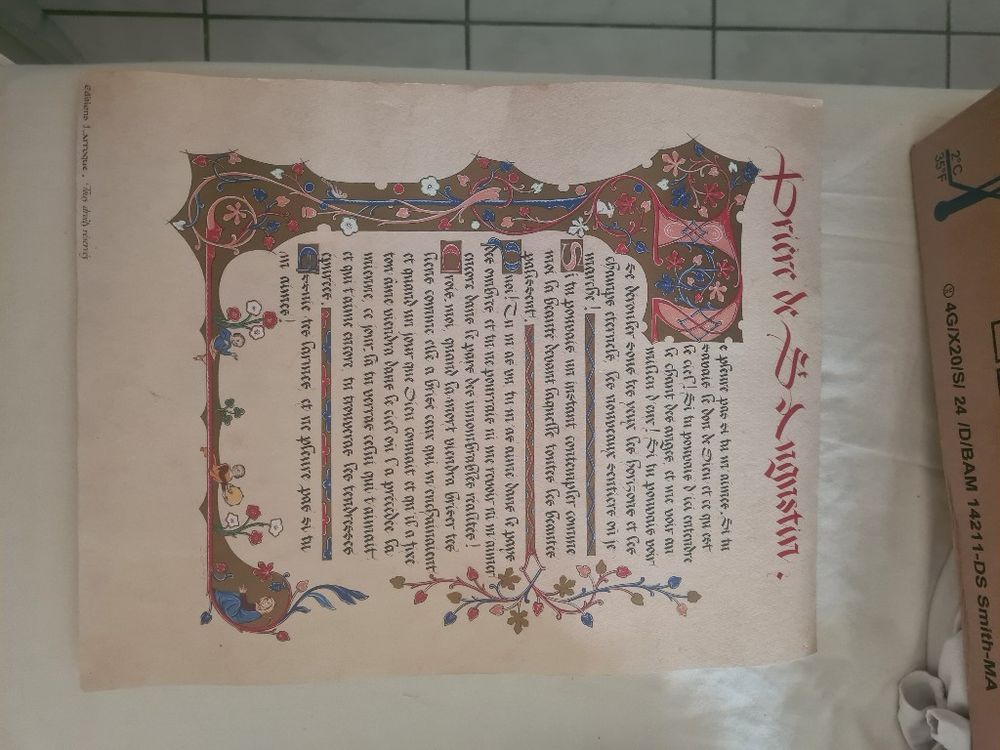 Prière de St Augustin.
e pleure pas si tu m'aimes. Si tu
savais le don de Dieu et ce qu'est
le ciel! Si tu pouvais d'ici entendre
le chant des anges et me voir au
milieu d'eux! Si tu pouvais voir
se dérouler sous tes yeux les horizons et les
champs éternels, les nouveaux sentiers où je
marche!
Si tu pouvais un instant contempler comme
moi la beauté devant laquelle toutes les beautés
palissent.
Quoi! Tu m'as vu tu m'as aimé dans le pays
des ombres et tu ne pourrais ni me revoir ni m'aimer
encore dans le pays des innombrables réalités!
Crois-moi, quand la mort viendra briser tes
liens comme elle a brisé ceux qui m'enchaînaient
et quand un jour que Dieu connaît et qu'il a fixé
ton âme viendra dans le ciel où l'a précédée la
mienne, ce jour là tu verras celui qui t'aimait
et qui t'aime encore, tu trouveras les tendresses
épurées.
Essuie tes larmes et ne pleure pas si tu
m'aimes!
Editions Larroque. Tous droits réservés
2°C
35°F
4G/X20/S/ 24 /D/BAM 14211-DS Smith-MA